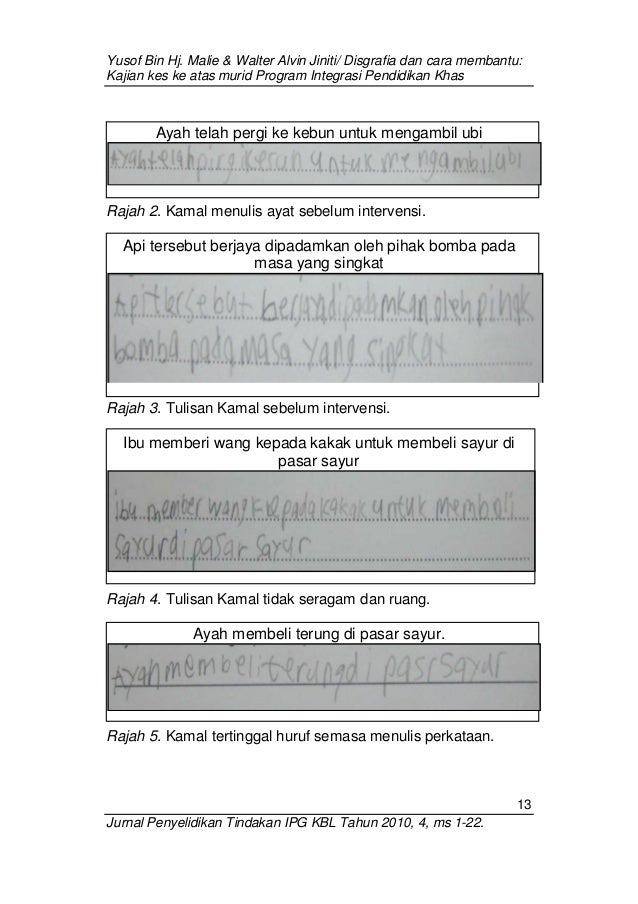 Yusof Bin Hj. Malie & Walter Alvin Jiniti/ Disgrafia dan cara membantu:
Kajian kes ke atas murid Program Integrasi Pendidikan Khas
Ayah telah pergi ke kebun untuk mengambil ubi
Ayahtelahpirgikerununtuk mengambilubi
Rajah 2. Kamal menulis ayat sebelum intervensi.
Api tersebut berjaya dipadamkan oleh pihak bomba pada
masa yang singkat
Apitlersebut berjayadipadamkanoleh pihak
bomba padamasa yang singkat
Rajah 3. Tulisan Kamal sebelum intervensi.
Ibu memberi wang kepada kakak untuk membeli sayur di
pasar sayur
ibu member wangkepadakakak untuk membali
Sayurdi pasar Sayur
Rajah 4. Tulisan Kamal tidak seragam dan ruang.
Ayah membeli terung di pasar sayur.
Ayahmembeliterungdi pasrsayur
Rajah 5. Kamal tertinggal huruf semasa menulis perkataan.
13
Jurnal Penyelidikan Tindakan IPG KBL Tahun 2010, 4, ms 1-22.